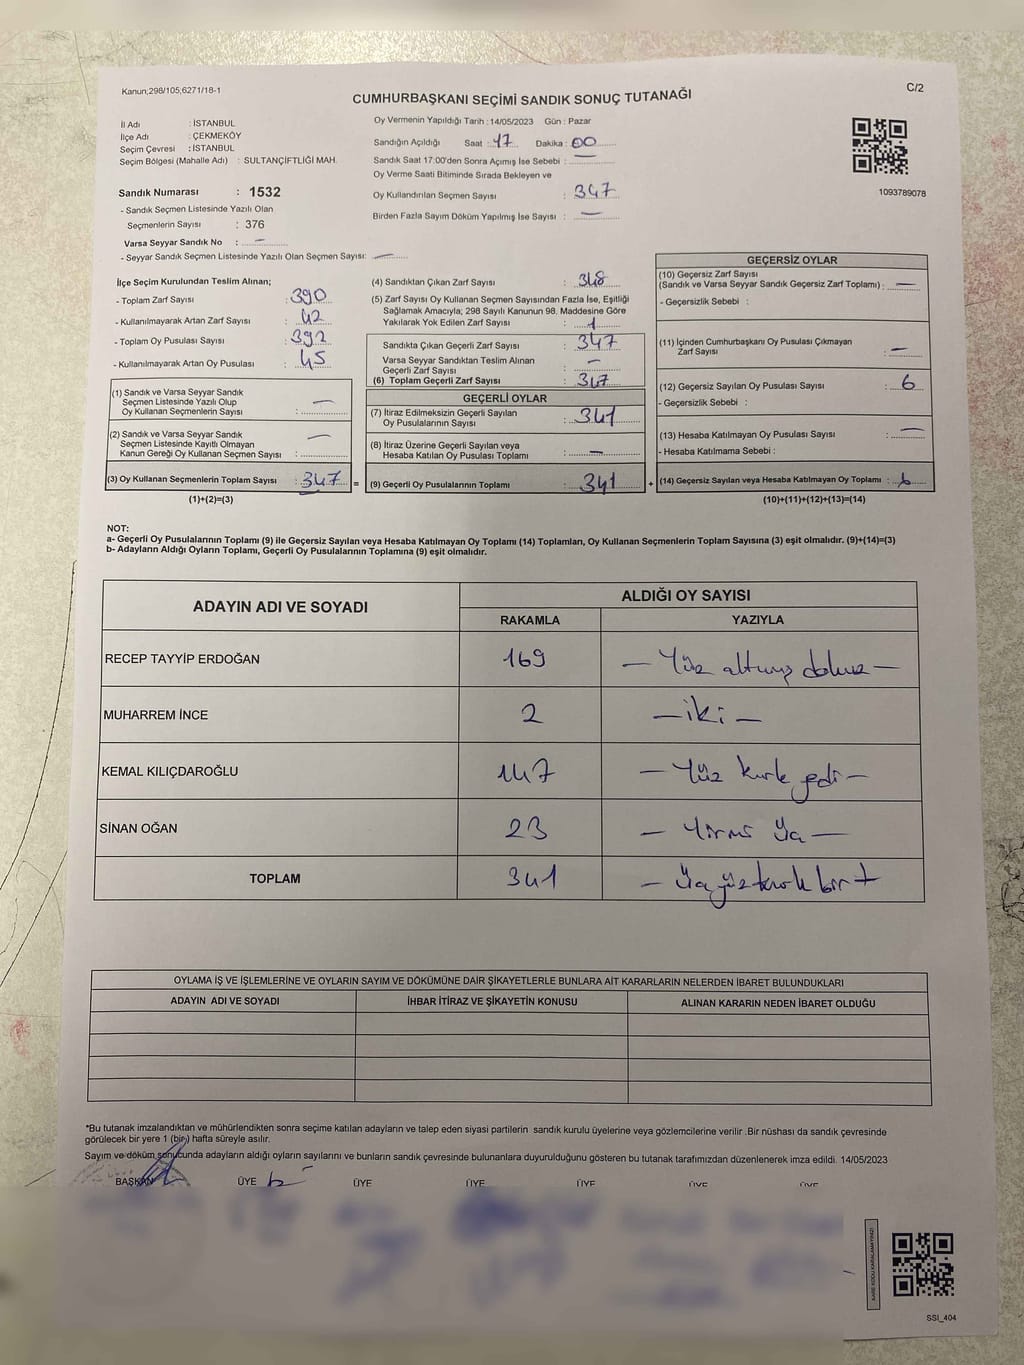 Kanun;298/105;6271/18-1
C/2
CUMHURBAŞKANI SEÇİMİ SANDIK SONUÇ TUTANAĞI
İl Adı : İSTANBUL
İlçe Adı : ÇEKMEKÖY
Seçim Çevresi : İSTANBUL
Seçim Bölgesi (Mahalle Adı) : SULTANÇİFTLİĞİ MAH.
Sandık Numarası : 1532
- Sandık Seçmen Listesinde Yazılı Olan
Seçmenlerin Sayısı : 376
Varsa Seyyar Sandık No : —
- Seyyar Sandık Seçmen Listesinde Yazılı Olan Seçmen Sayısı: —
Oy Vermenin Yapıldığı Tarih : 14/05/2023 Gün : Pazar
Sandığın Açıldığı Saat : 17 Dakika : 00
Sandık Saat 17:00'den Sonra Açımış İse Sebebi : —
Oy Verme Saati Bitiminde Sırada Bekleyen ve
Oy Kullandırılan Seçmen Sayısı : 347
Birden Fazla Sayım Döküm Yapılmış İse Sayısı : —
1093789078
İlçe Seçim Kurulundan Teslim Alınan;
- Toplam Zarf Sayısı : 390
- Kullanılmayarak Artan Zarf Sayısı : 42
- Toplam Oy Pusulası Sayısı : 392
- Kullanılmayarak Artan Oy Pusulası : 45
(1) Sandık ve Varsa Seyyar Sandık
Seçmen Listesinde Yazılı Olup
Oy Kullanan Seçmenlerin Sayısı : —
(2) Sandık ve Varsa Seyyar Sandık
Seçmen Listesinde Kayıtlı Olmayan
Kanun Gereği Oy Kullanan Seçmen Sayısı : —
(3) Oy Kullanan Seçmenlerin Toplam Sayısı : 347 =
(1)+(2)=(3)
(4) Sandıktan Çıkan Zarf Sayısı : 348
(5) Zarf Sayısı Oy Kullanan Seçmen Sayısından Fazla İse, Eşitliği
Sağlamak Amacıyla; 298 Sayılı Kanunun 98. Maddesine Göre
Yakılarak Yok Edilen Zarf Sayısı : 1
Sandıkta Çıkan Geçerli Zarf Sayısı : 347
Varsa Seyyar Sandıktan Teslim Alınan
Geçerli Zarf Sayısı : —
(6) Toplam Geçerli Zarf Sayısı : 347
GEÇERLİ OYLAR
(7) İtiraz Edilmeksizin Geçerli Sayılan
Oy Pusulalarının Sayısı : 341
(8) İtiraz Üzerine Geçerli Sayılan veya
Hesaba Katılan Oy Pusulası Toplamı : —
(9) Geçerli Oy Pusulalarının Toplamı : 341 +
GEÇERSİZ OYLAR
(10) Geçersiz Zarf Sayısı
(Sandık ve Varsa Seyyar Sandık Geçersiz Zarf Toplamı) : —
- Geçersizlik Sebebi :
(11) İçinden Cumhurbaşkanı Oy Pusulası Çıkmayan
Zarf Sayısı : —
(12) Geçersiz Sayılan Oy Pusulası Sayısı : 6
- Geçersizlik Sebebi :
(13) Hesaba Katılmayan Oy Pusulası Sayısı : —
- Hesaba Katılmama Sebebi :
(14) Geçersiz Sayılan veya Hesaba Katılmayan Oy Toplamı : 6
(10)+(11)+(12)+(13)=(14)
NOT:
a- Geçerli Oy Pusulalarının Toplamı (9) ile Geçersiz Sayılan veya Hesaba Katılmayan Oy Toplamı (14) Toplamları, Oy Kullanan Seçmenlerin Toplam Sayısına (3) eşit olmalıdır. (9)+(14)=(3)
b- Adayların Aldığı Oyların Toplamı, Geçerli Oy Pusulalarının Toplamına (9) eşit olmalıdır.
ADAYIN ADI VE SOYADI
ALDIĞI OY SAYISI
RAKAMLA YAZIYLA
RECEP TAYYİP ERDOĞAN 169 — Yüz altmış dokuz —
MUHARREM İNCE 2 — iki —
KEMAL KILIÇDAROĞLU 147 — Yüz kırk yedi —
SİNAN OĞAN 23 — Yirmi Üç —
TOPLAM 341 — Üç yüz kırk bir —
OYLAMA İŞ VE İŞLEMLERİNE VE OYLARIN SAYIM VE DÖKÜMÜNE DAİR ŞİKAYETLERLE BUNLARA AİT KARARLARIN NELERDEN İBARET BULUNDUKLARI
ADAYIN ADI VE SOYADI İHBAR İTİRAZ VE ŞİKAYETİN KONUSU ALINAN KARARIN NEDEN İBARET OLDUĞU
*Bu tutanak imzalandıktan ve mühürlendikten sonra seçime katılan adayların ve talep eden siyasi partilerin sandık kurulu üyelerine veya gözlemcilerine verilir .Bir nüshası da sandık çevresinde
görülecek bir yere 1 (bir) hafta süreyle asılır.
Sayım ve döküm sonucunda adayların aldığı oyların sayılarını ve bunların sandık çevresinde bulunanlara duyurulduğunu gösteren bu tutanak tarafımızdan düzenlenerek imza edildi. 14/05/2023
BAŞKAN ÜYE ÜYE ÜYE ÜYE ÜYE ÜYE
KARE KODU KARALAMAYINIZ!
SSI_404